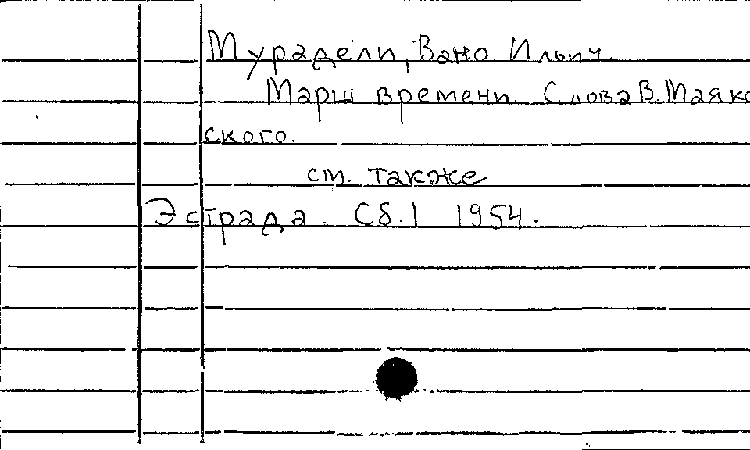 Мурадели, Вано Ильич.
Марш времени. Слова В. Маяко
ского.
см. также
Эстрада. Сб. 1 1954.